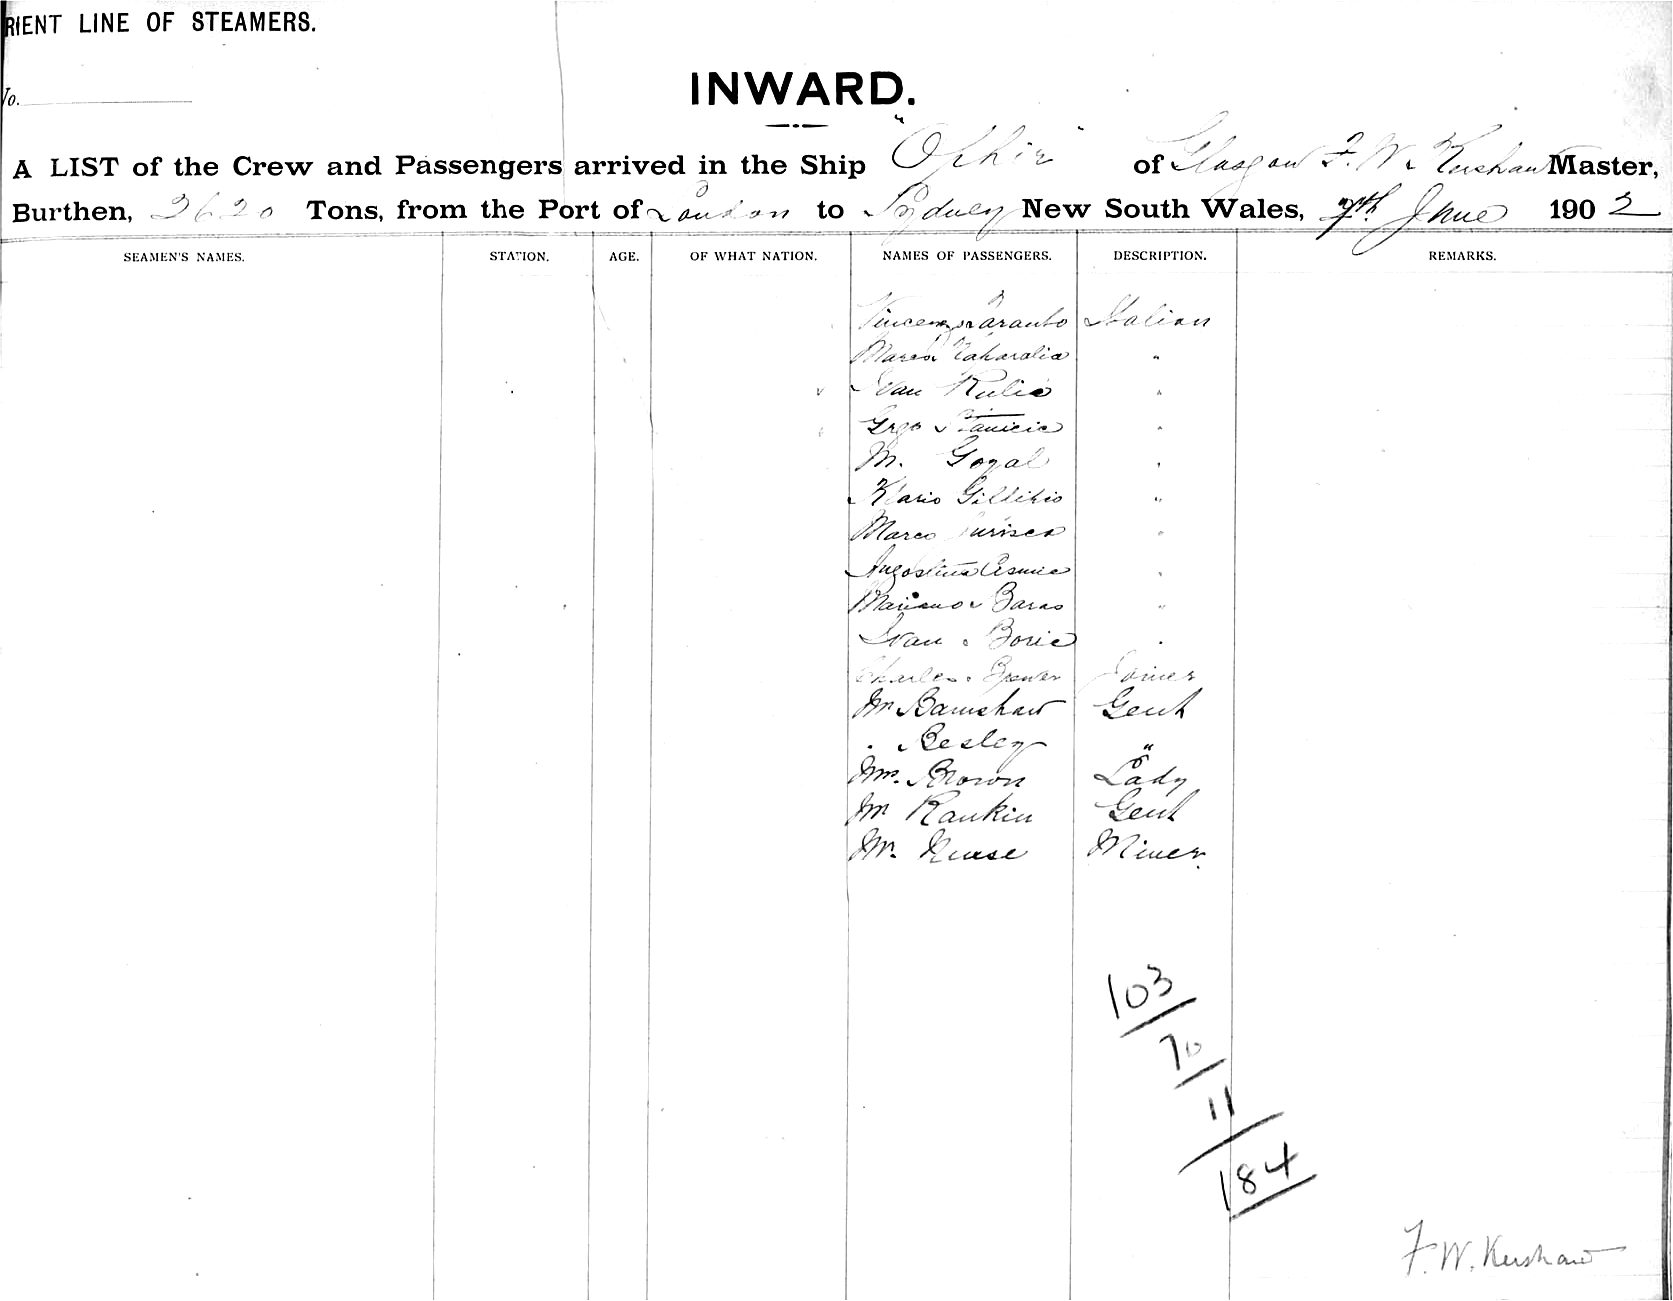 RIENT LINE OF STEAMERS.
No.
INWARD.
A LIST of the Crew and Passengers arrived in the Ship "Ophir" of Glasgow F. W. Kershaw Master,
Burthen, 3620 Tons, from the Port of London to Sydney New South Wales, 7th June 1902
SEAMEN'S NAMES. STATION. AGE. OF WHAT NATION. NAMES OF PASSENGERS. DESCRIPTION. REMARKS.
Vincenzo Taranto Italian
Marco "
Ivan Kulic "
Grgo Stanicic "
M. Goyal "
Mario "
Marco "
Augostina "
Mariano Baras "
Ivan Boric "
Charles Spencer Joiner
Mr Bamshaw Gent
" Besley "
Mrs. Brown Lady
Mr Rankin Gent
Mr. Nurse Miner.
103
70
11
184
F. W. Kershaw